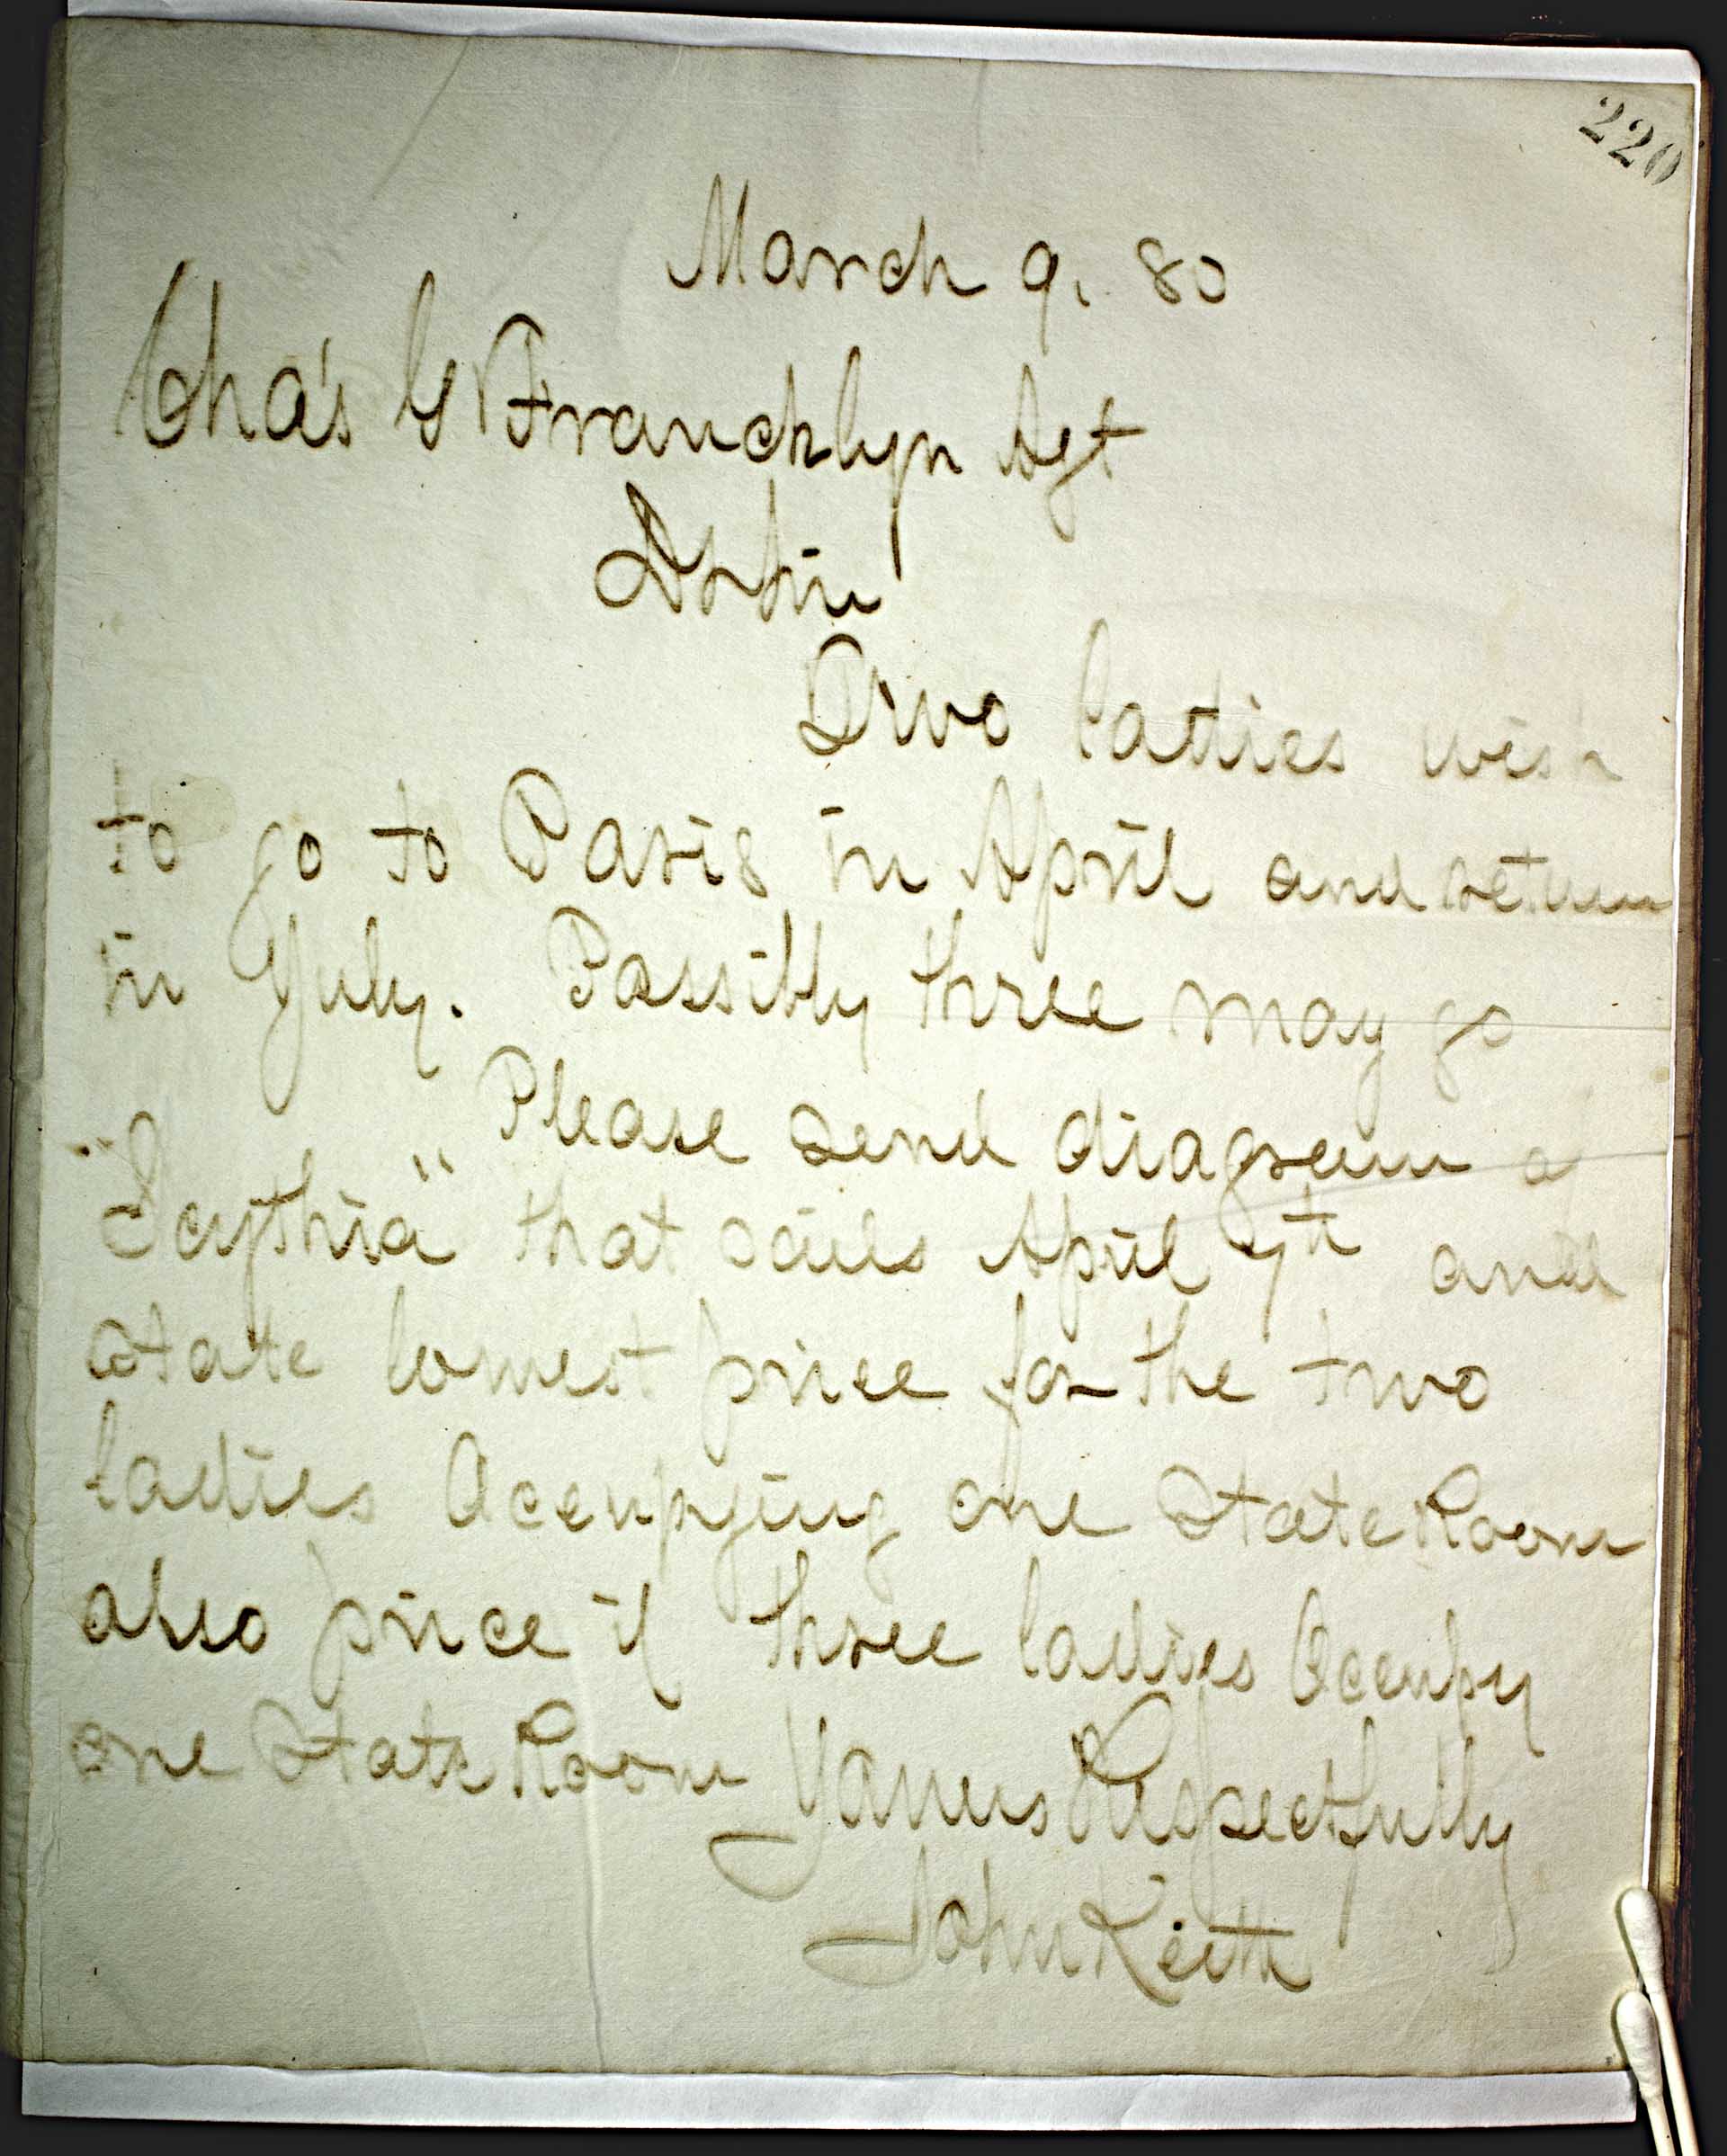 220
March 9. 80
Cha's G Francklyn Agt
D Sir
Two ladies wish
to go to Paris in April and return
in July. Possibly three may go
Please send diagram of
"Scythia" that sails April 7th and
state lowest price for the two
ladies Occupying one State Room
also price if three ladies Occupy
one State Room Yours Respectfully
John Keith